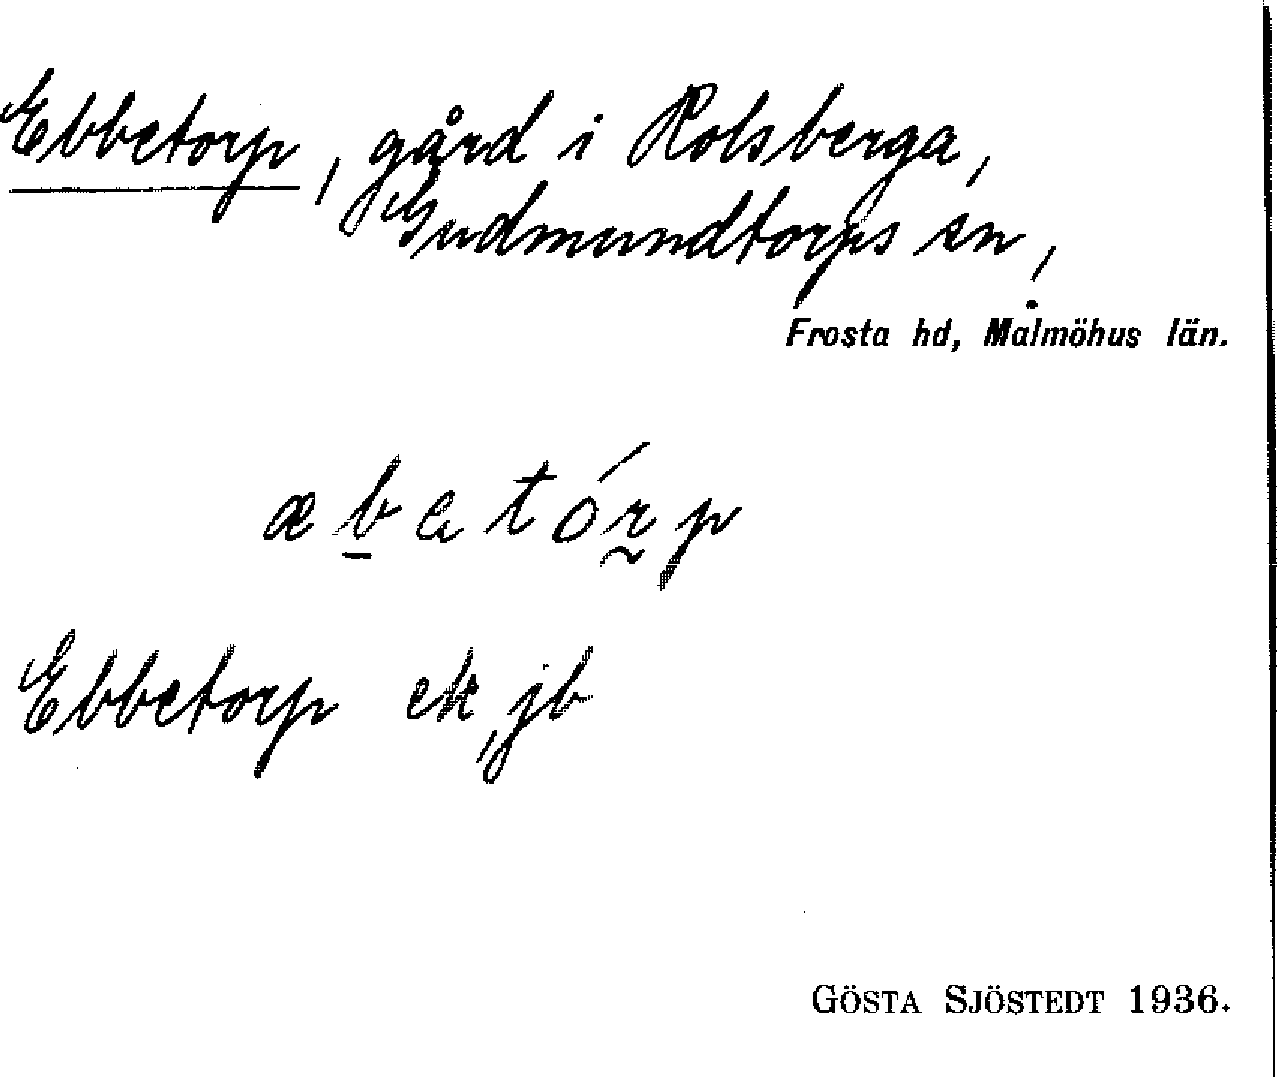 Ebbetorp, gård i Rolsberga,
Gudmundtorps sn,
Frosta hd, Malmöhus län.
æb̲ətór̰p
Ebbetorp ek, jb
GÖSTA SJÖSTEDT 1936.